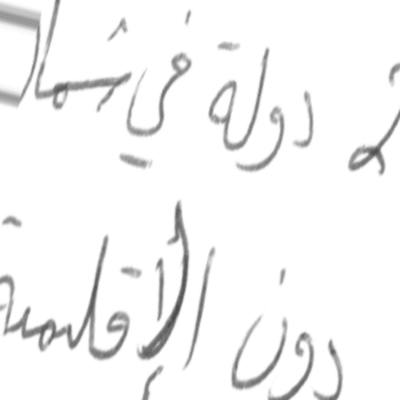 دولة في شما
دون الإقليمية